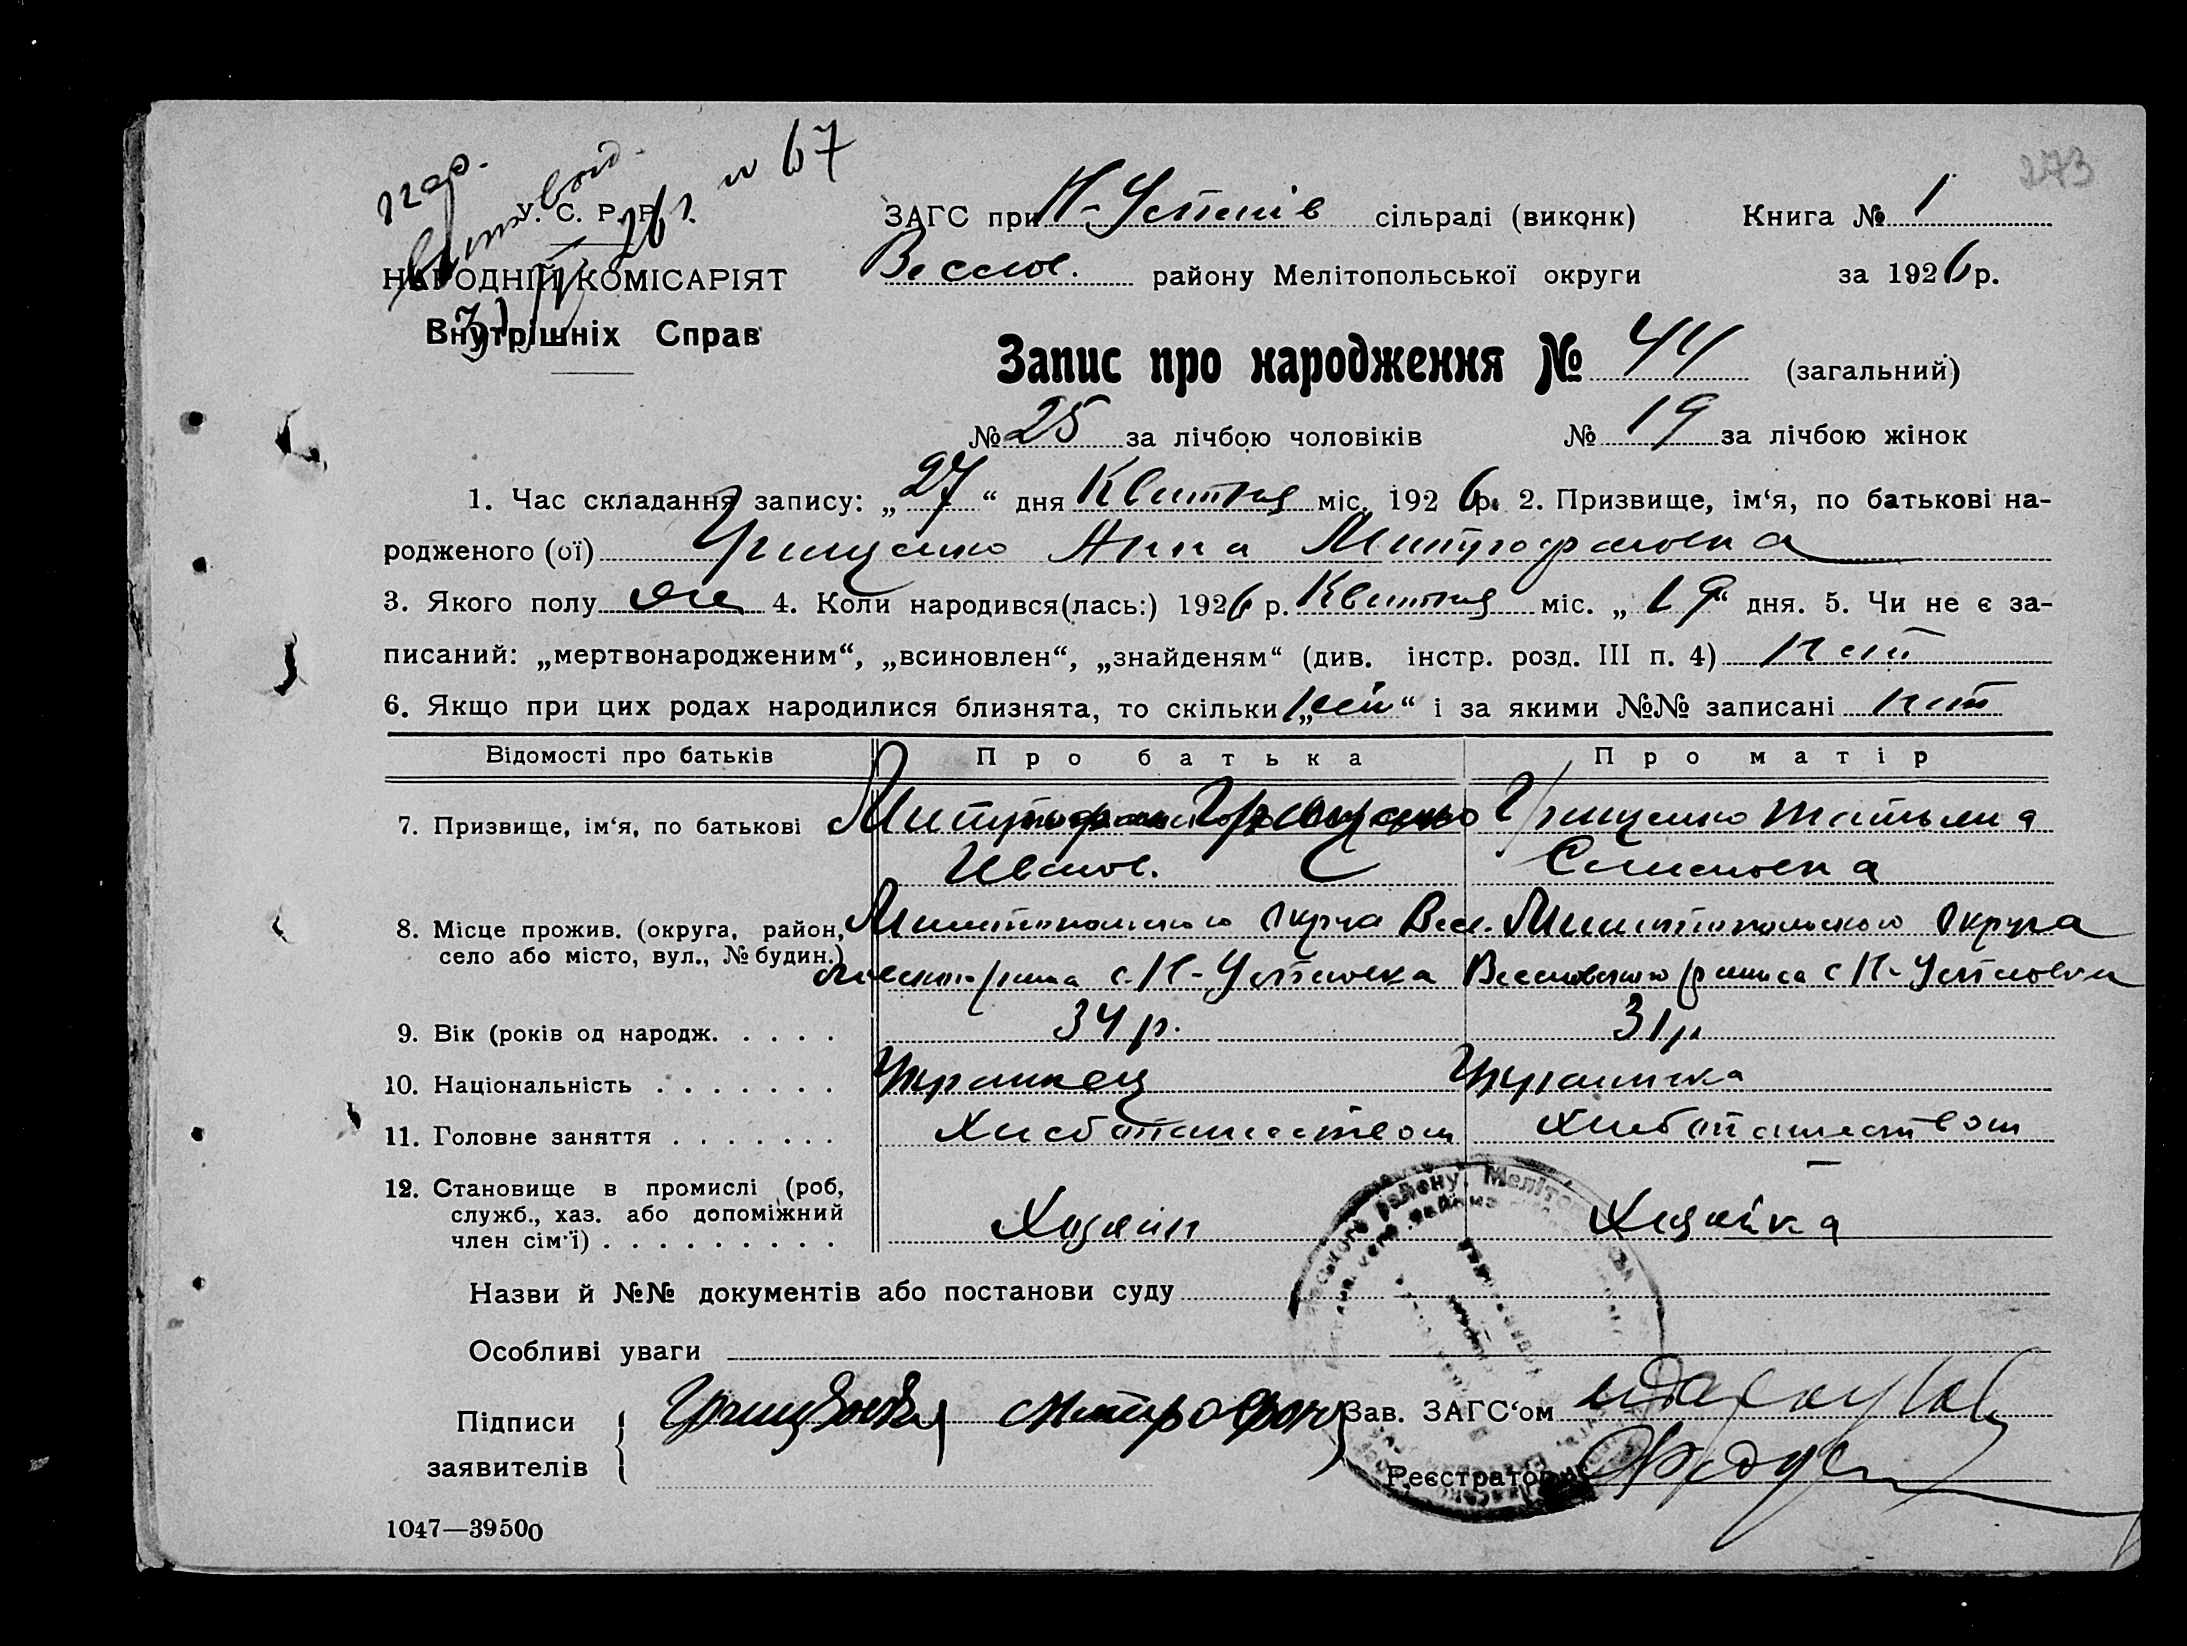 273
нар.
У. С. Р. Р. 26 г. № 67
НАРОДНІЙ КОМІСАРІЯТ
Внутрішніх Справ
ЗАГС при Н-Успенів сільраді (виконк) Книга № 1
Весел. району Мелітопольської округи за 1926 р.
Запис про народження № 44 (загальний)
№ 25 за лічбою чоловіків № 19 за лічбою жінок
1. Час складання запису: „27“ дня Квитня міс. 1926 р. 2. Призвище, ім‘я, по батькові на-
родженого (ої) Грищенко Анна Митрофановна
3. Якого полу жен 4. Коли народився(лась:) 1926 р. Квитня міс. „19“ дня. 5. Чи не є за-
писаний: „мертвонародженим“, „всиновлен“, „знайденям“ (див. інстр. розд. III п. 4) нет
6. Якщо при цих родах народилися близнята, то скільки „нет“ і за якими №№ записані нет
Відомості про батьків Про батька Про матір
7. Призвище, ім‘я, по батькові Митрофан Грищенко Грищенко Татьяна
Иванов. Семеновна
8. Місце прожив. (округа, район, Мелитопольского Округа Весе- Мелитопольского Округа
село або місто, вул., № будин.) ловского района с. Н-Успеновка Веселовского района с Н-Успеновки
9. Вік (років од народж. . . . . 34 р. 31 р.
10. Національність . . . . . . . Украинец Украинка
11. Головне заняття . . . . . . . Хлебопашеством Хлебопашеством
12. Становище в промислі (роб,
служб., хаз. або допоміжний
член сім‘ї) . . . . . . . . . Хозяин Хозяйка
Назви й №№ документів або постанови суду
Особливі уваги
Підписи Митрофан Зав. ЗАГС‘ом
заявителів Реєстратор
1047—39500